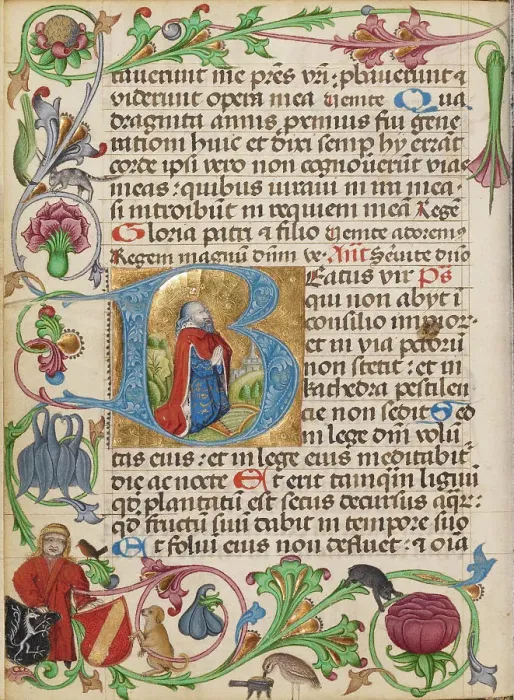 tauerunt me pres vri : pbauerunt ⁊
viderunt opera mea Uenite Qua
draginta annis proximus fui gene
rationi huic et dixi semp hy errāt
corde ipsi vero non cognouerūt vias
meas : quibus iuraui in ira mea ·
si introibūt in requiem meā Regē
Gloria patri ⁊ filio Uenite adoremꝰ
Regem magnū dūm ve· Añt Seruite dūo
Beatus vir Ps
qui non abyt ī
consilio impior·
et in via pctorū
non stetit : et in
kathedra pestilen
cie non sedit Sed
in lege dūi volū
tas eius : et in lege eius meditabit᷑
die ac nocte Et erit tamqͥm lignū
qd̄ plantatū est secus decursus aqr̄ :
qd̄ fructū suū dabit in tempore suo
Et foliū eius non defluet : ⁊ oīa